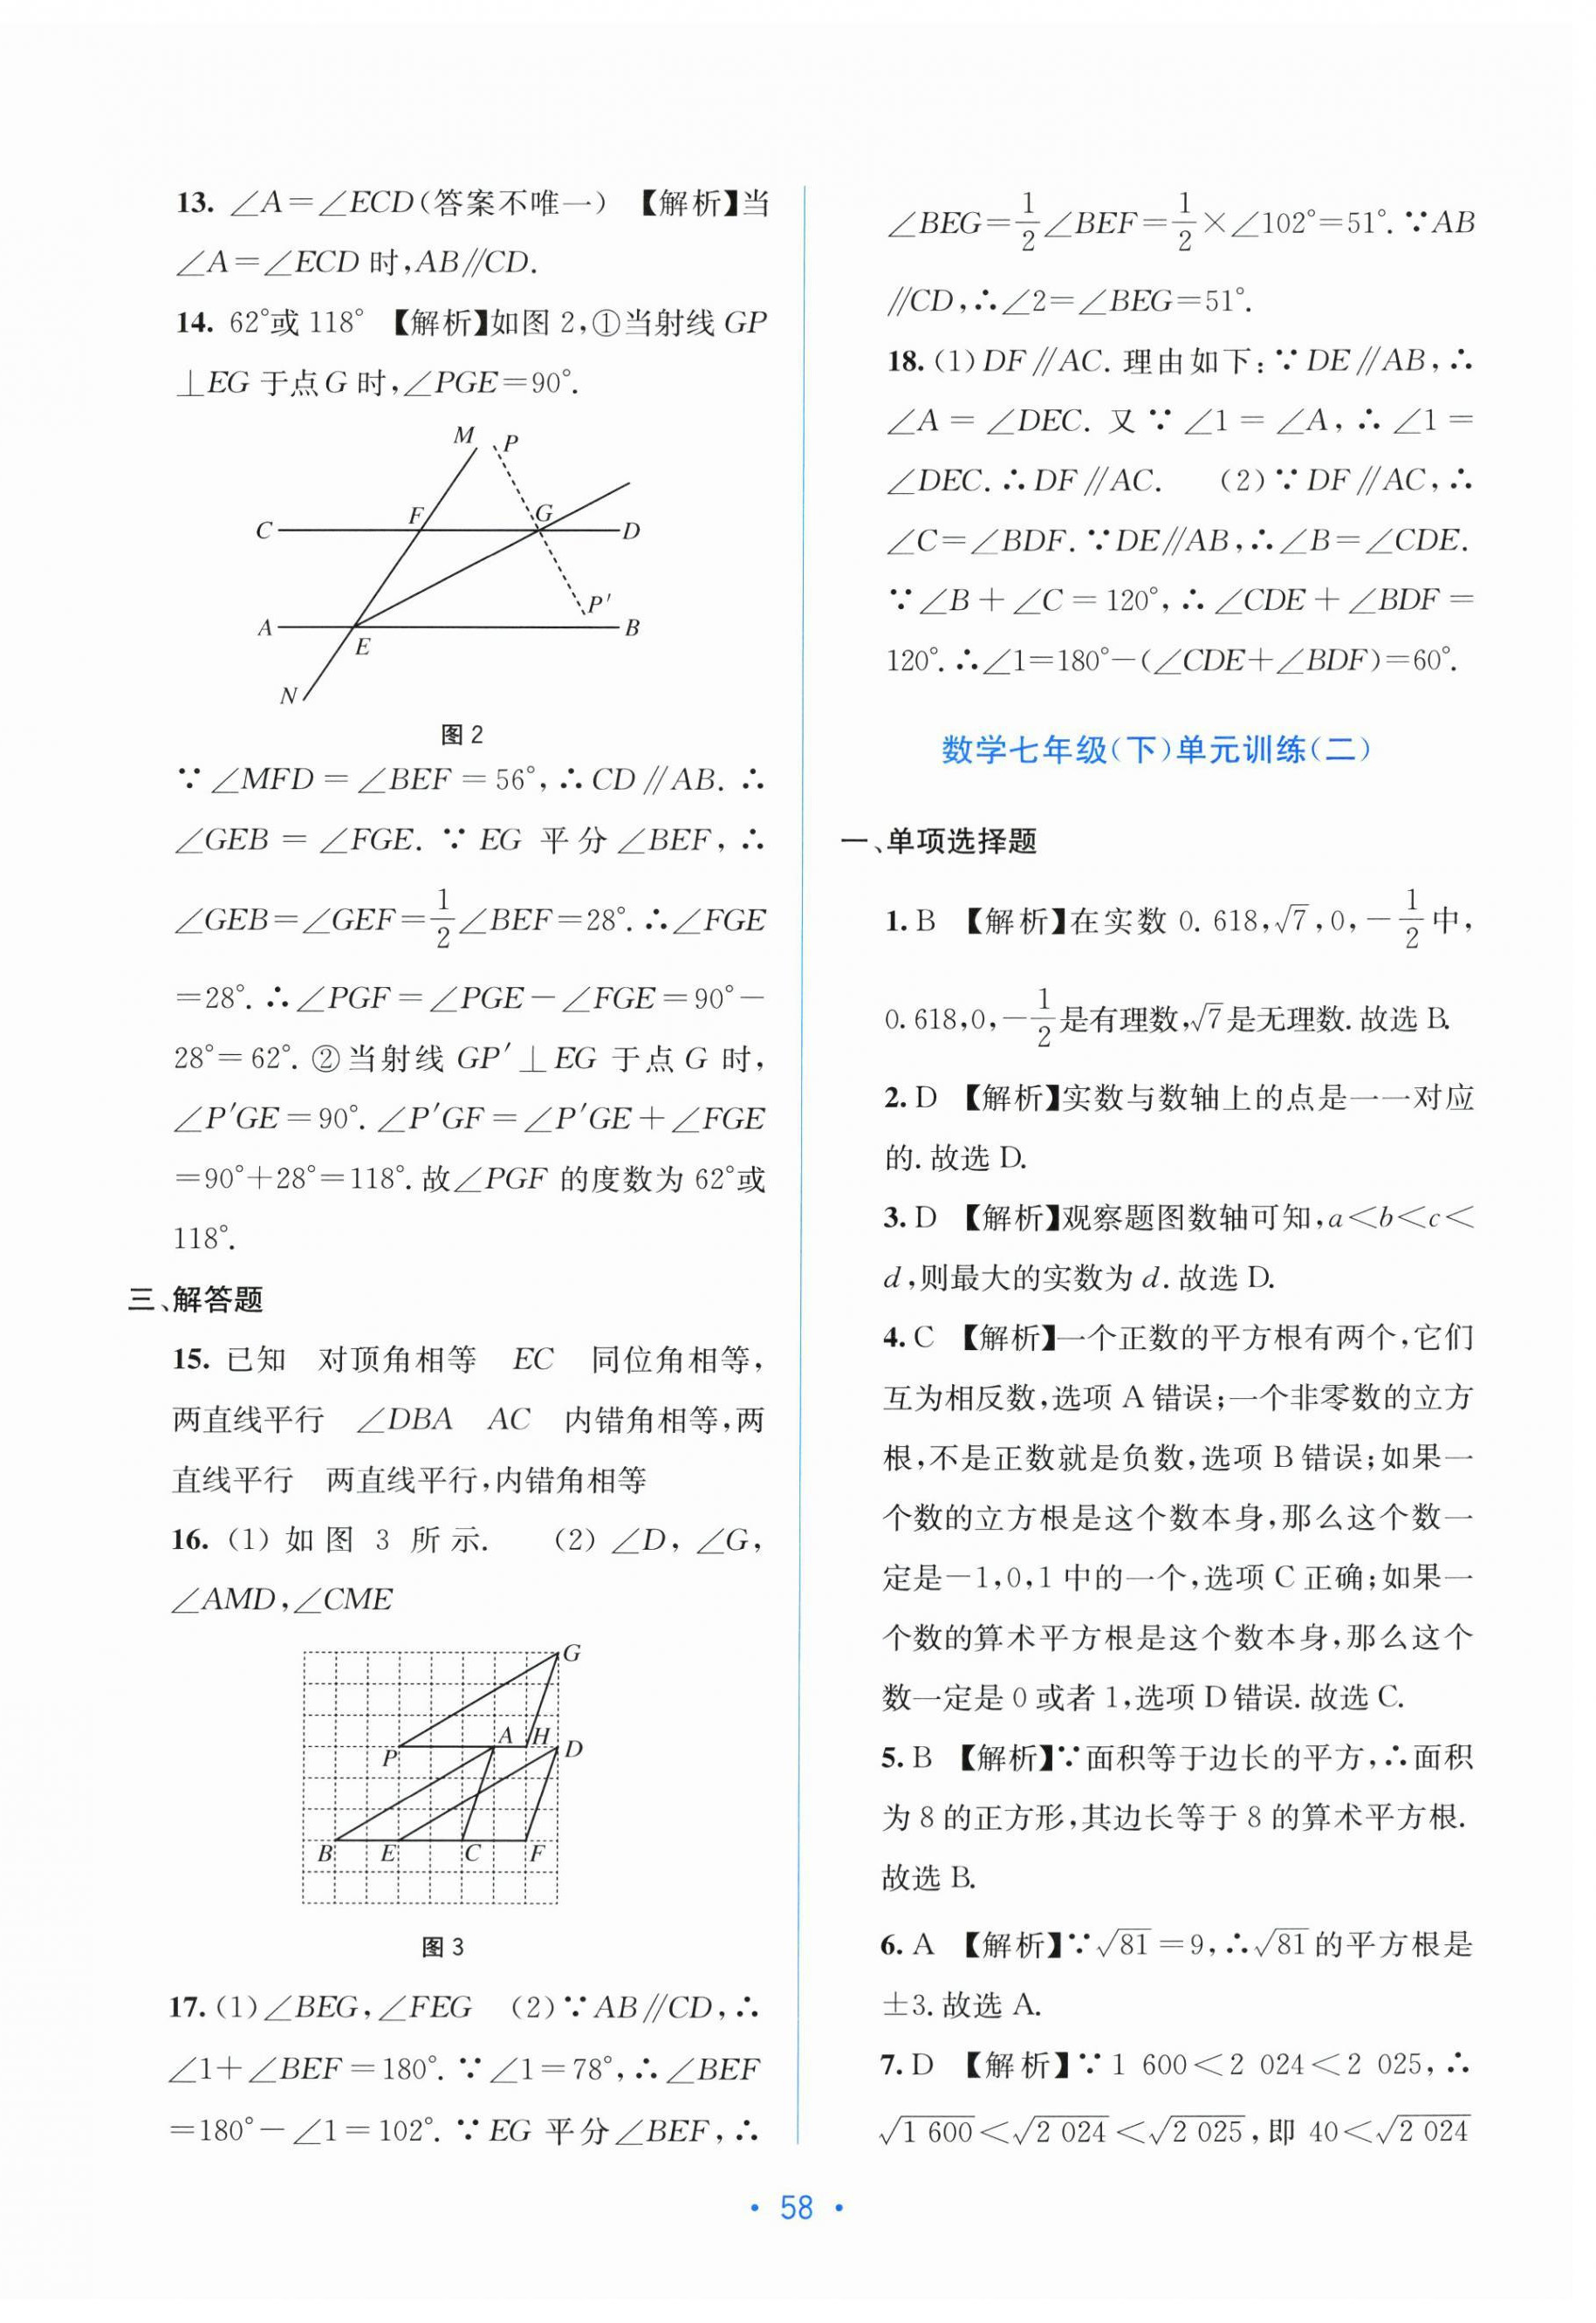 13. ∠A=∠ECD(答案不唯一) 【解析】当
∠A=∠ECD 时,AB∥CD.
14. 62°或 118° 【解析】如图 2,①当射线 GP
⊥EG 于点G 时,∠PGE=90°.
M P
C F G D
P′
A E B
N
图 2
∵∠MFD=∠BEF=56°,∴CD∥AB. ∴
∠GEB=∠FGE. ∵ EG 平分∠BEF,∴
∠GEB=∠GEF=1/2∠BEF=28°. ∴∠FGE
=28°. ∴∠PGF=∠PGE-∠FGE=90°-
28°=62°. ②当射线 GP′⊥EG 于点 G 时,
∠P′GE=90°. ∠P′GF=∠P′GE+∠FGE
=90°+28°=118°. 故∠PGF 的度数为 62°或
118°.
三、解答题
15. 已知 对顶角相等 EC 同位角相等,
两直线平行 ∠DBA AC 内错角相等,两
直线平行 两直线平行,内错角相等
16. (1) 如图 3 所示. (2) ∠D,∠G,
∠AMD,∠CME
G
P A H D
B E C F
图 3
17. (1)∠BEG,∠FEG (2)∵AB∥CD,∴
∠1+∠BEF=180°. ∵∠1=78°,∴∠BEF
=180°-∠1=102°. ∵EG 平分∠BEF,∴
∠BEG=1/2∠BEF=1/2×∠102°=51°. ∵AB
∥CD,∴∠2=∠BEG=51°.
18. (1)DF∥AC. 理由如下:∵DE∥AB,∴
∠A=∠DEC. 又∵∠1=∠A,∴∠1=
∠DEC. ∴DF∥AC. (2)∵DF∥AC,∴
∠C=∠BDF. ∵DE∥AB,∴∠B=∠CDE.
∵∠B+∠C=120°,∴∠CDE+∠BDF=
120°. ∴∠1=180°-(∠CDE+∠BDF)=60°.
数学七年级(下)单元训练(二)
一、单项选择题
1. B 【解析】在实数 0. 618,√7,0,-1/2中,
0. 618,0,-1/2是有理数,√7是无理数. 故选 B.
2. D 【解析】实数与数轴上的点是一一对应
的. 故选 D.
3. D 【解析】观察题图数轴可知,a<b<c<
d,则最大的实数为 d. 故选 D.
4. C 【解析】一个正数的平方根有两个,它们
互为相反数,选项 A 错误;一个非零数的立方
根,不是正数就是负数,选项 B 错误;如果一
个数的立方根是这个数本身,那么这个数一
定是-1,0,1 中的一个,选项 C 正确;如果一
个数的算术平方根是这个数本身,那么这个
数一定是 0 或者 1,选项 D 错误. 故选 C.
5. B 【解析】∵面积等于边长的平方,∴面积
为 8 的正方形,其边长等于 8 的算术平方根.
故选 B.
6. A 【解析】∵√81=9,∴√81的平方根是
±3. 故选 A.
7. D 【解析】∵1 600<2 024<2 025,∴
√1 600<√2 024<√2 025,即 40<√2 024
· 58 ·